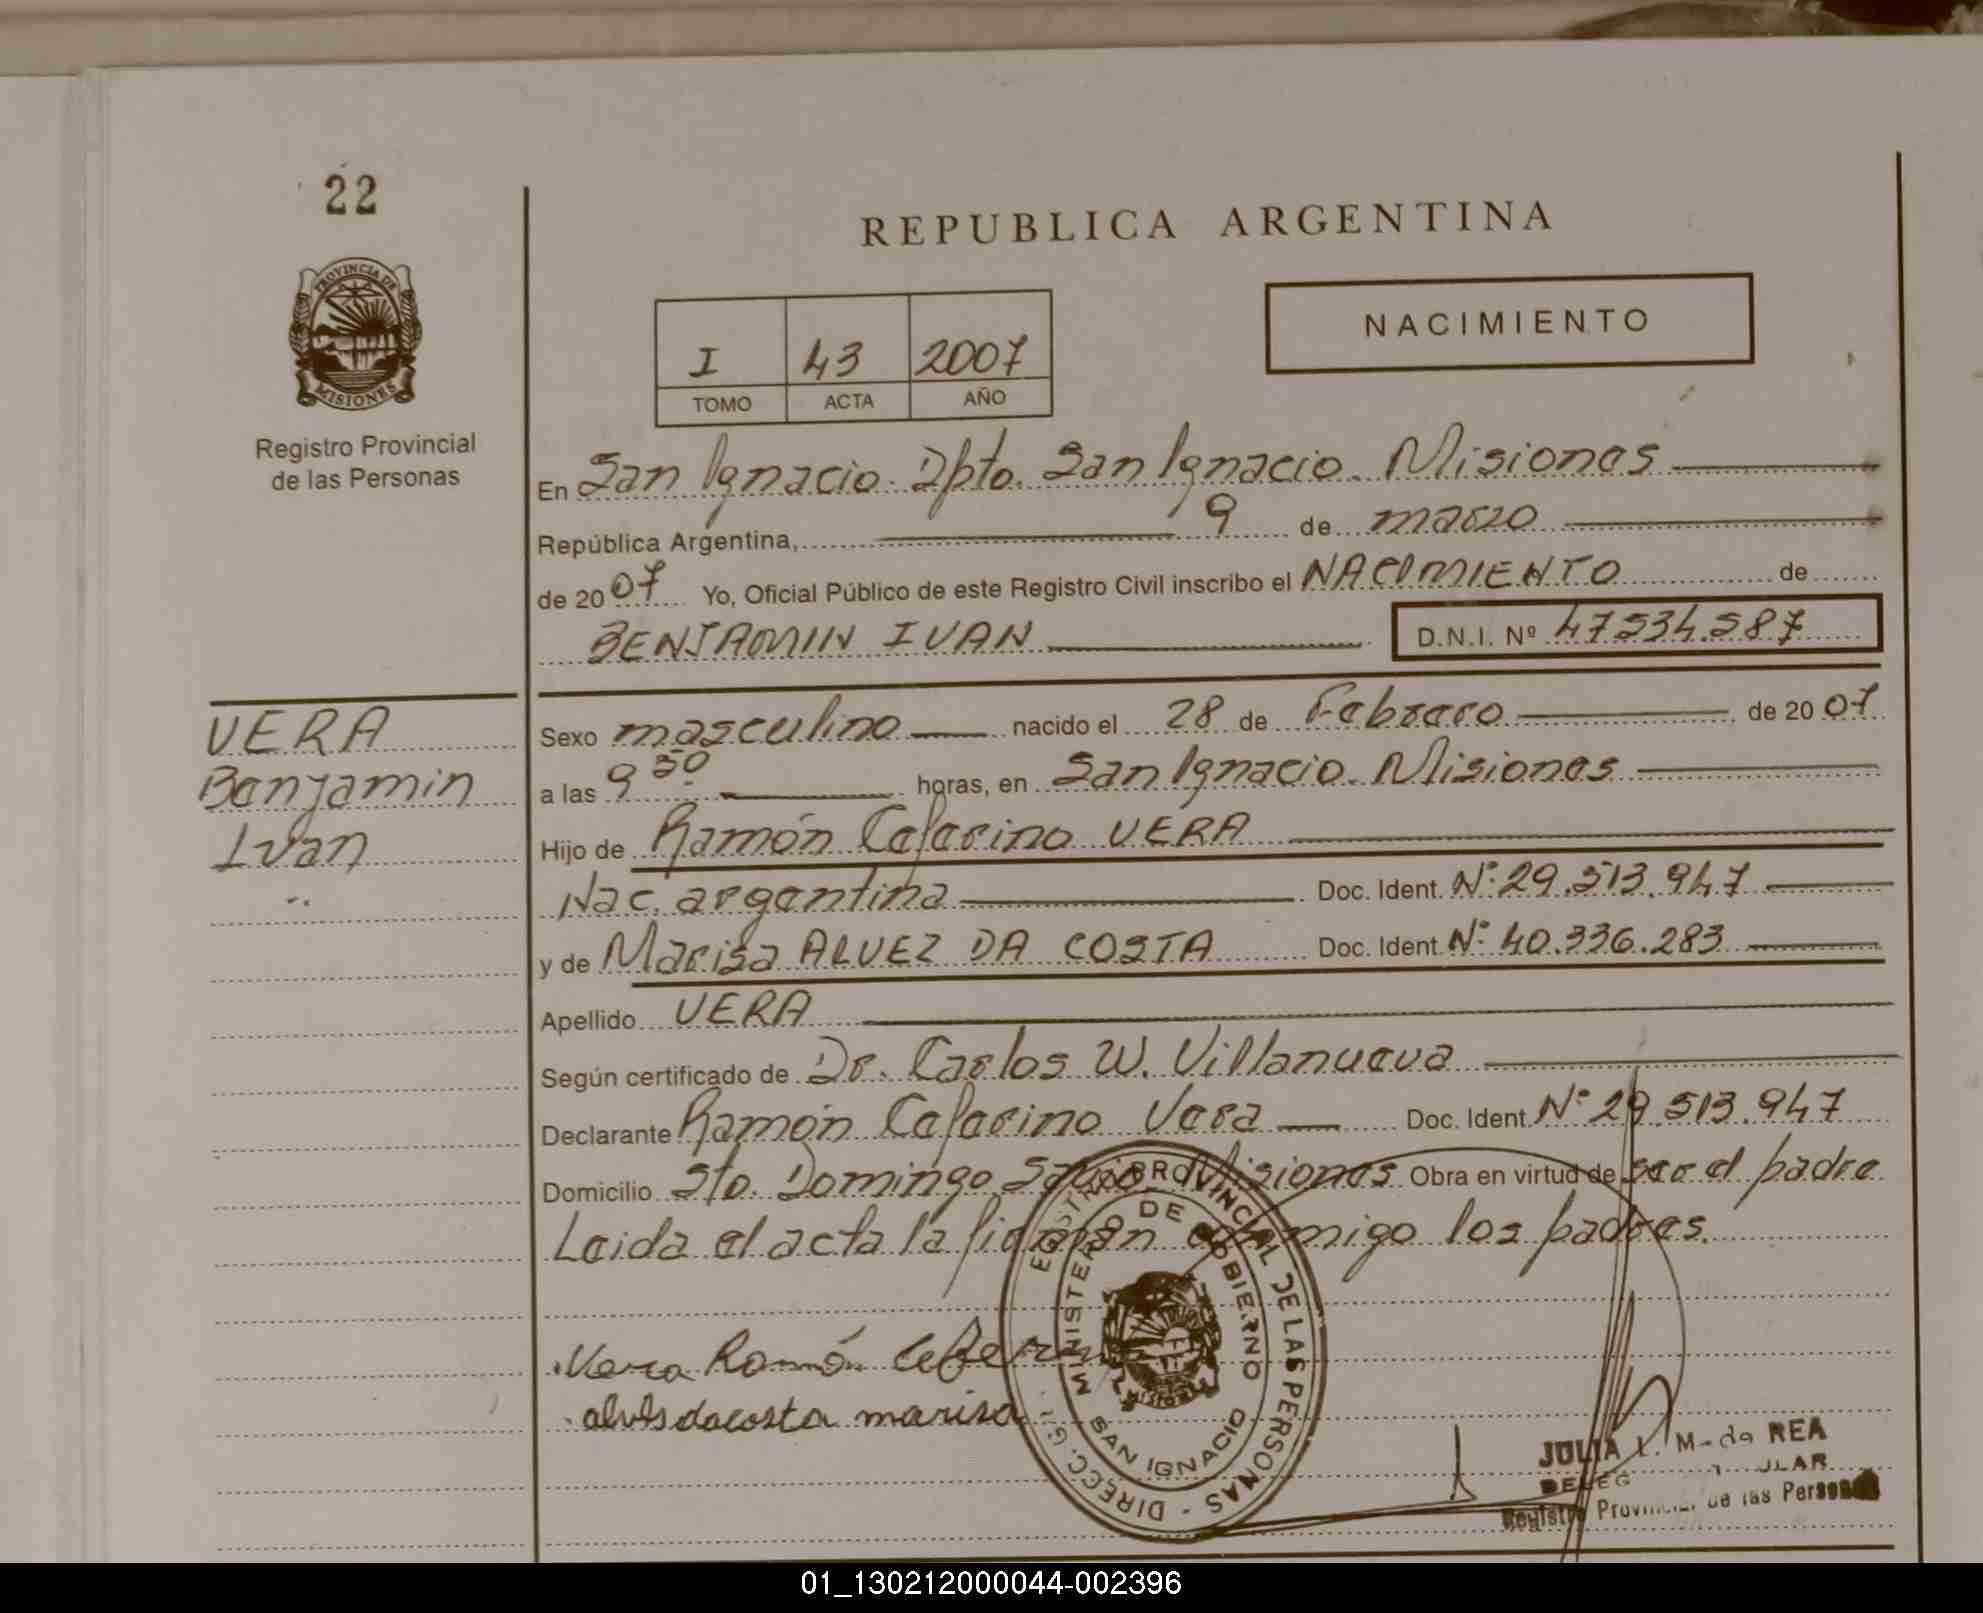 22
REPUBLICA ARGENTINA
PROVINCIA DE
MISIONES
NACIMIENTO
I 43 2007
TOMO ACTA AÑO
Registro Provincial
de las Personas
En San Ignacio. Dpto. San Ignacio. Misiones
República Argentina, 9 de marzo
de 2007 Yo, Oficial Público de este Registro Civil inscribo el NACIMIENTO de
BENJAMIN IVAN D.N.I. Nº 47534.587
VERA
Benjamin
Ivan
Sexo masculino nacido el 28 de Febrero de 2007
a las 9 30 horas, en San Ignacio. Misiones
Hijo de Ramón Ceferino VERA
Nac. argentina Doc. Ident. Nº: 29.513.947
y de Marisa ALVEZ DA COSTA Doc. Ident. Nº: 40.336.283
Apellido VERA
Según certificado de Dr. Carlos W. Villanueva
Declarante Ramón Ceferino Vera Doc. Ident. Nº 29.513.947
Domicilio Sto. Domingo Savio Misiones Obra en virtud de ser el padre
Leida el acta la firman conmigo los padres.
Vera Ramón Ceferin
alvesdacosta marisa
PROVINCIAL DE LAS PERSONAS - DIREC. GRL
MINISTERIO DE GOBIERNO
SAN IGNACIO
JULIA I. M. de REA
Registro Provincial de las Personas
01_130212000044-002396